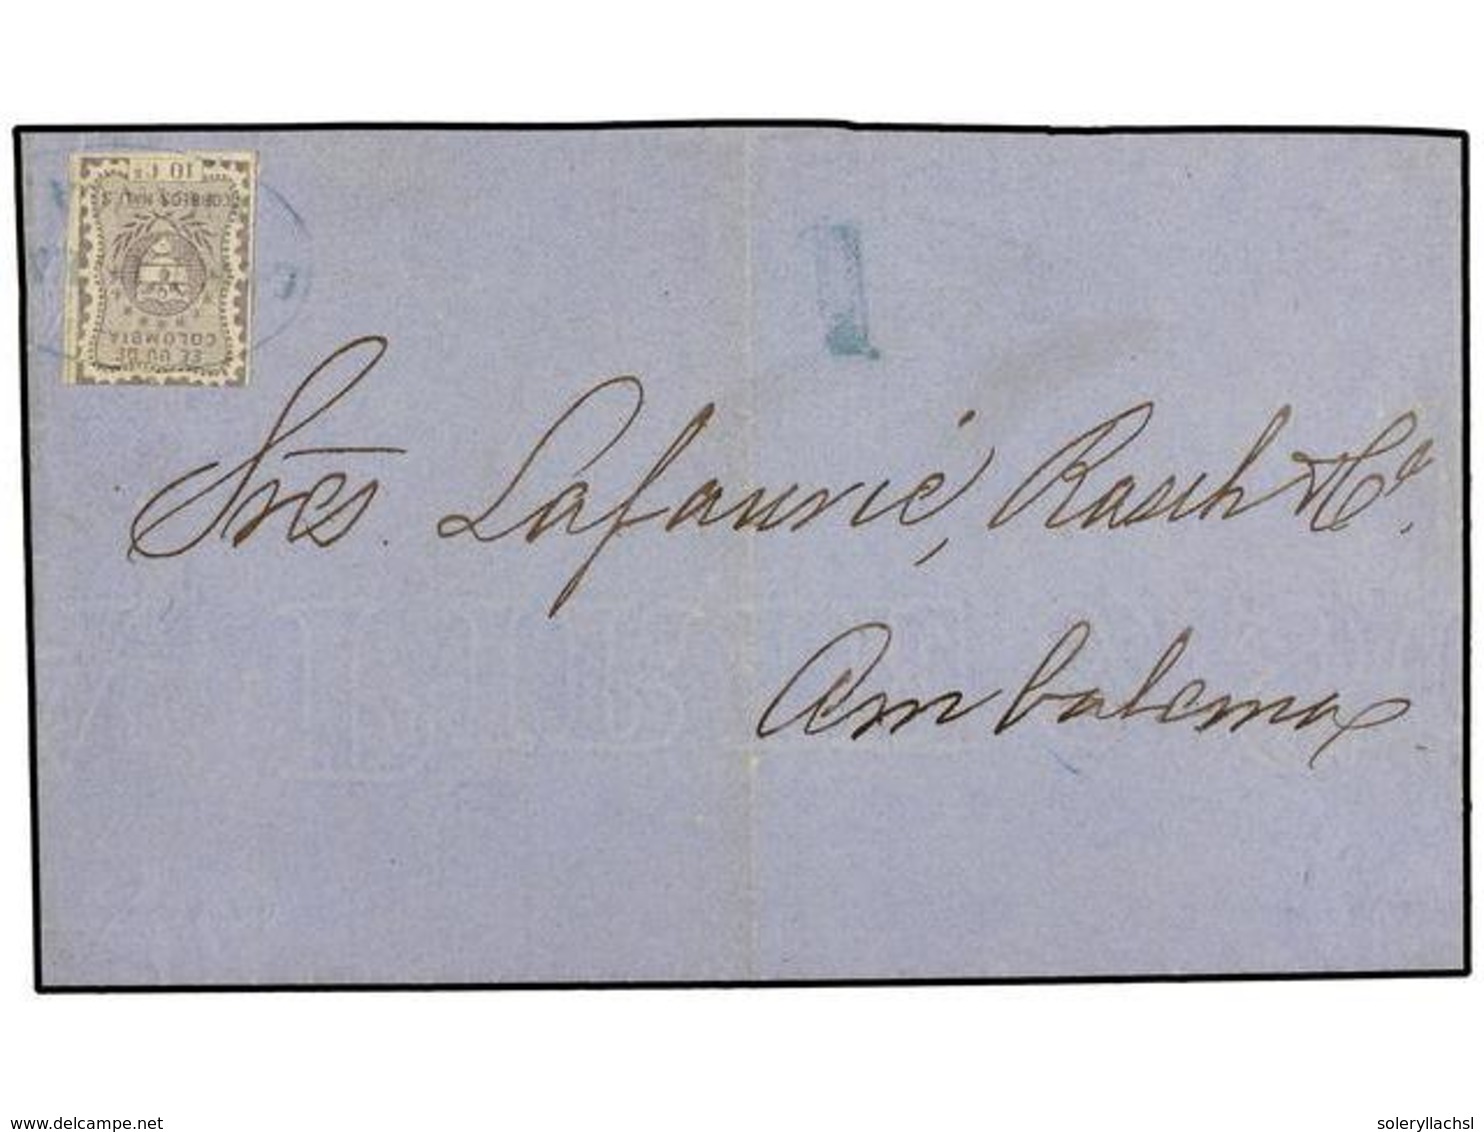 10 Cs
CORREOS NALS
EE UU DE
COLOMBIA
1
Sres. Lafaurié, Rasch & Cª.
Ambalema
www.delcampe.net
soleryllachsl